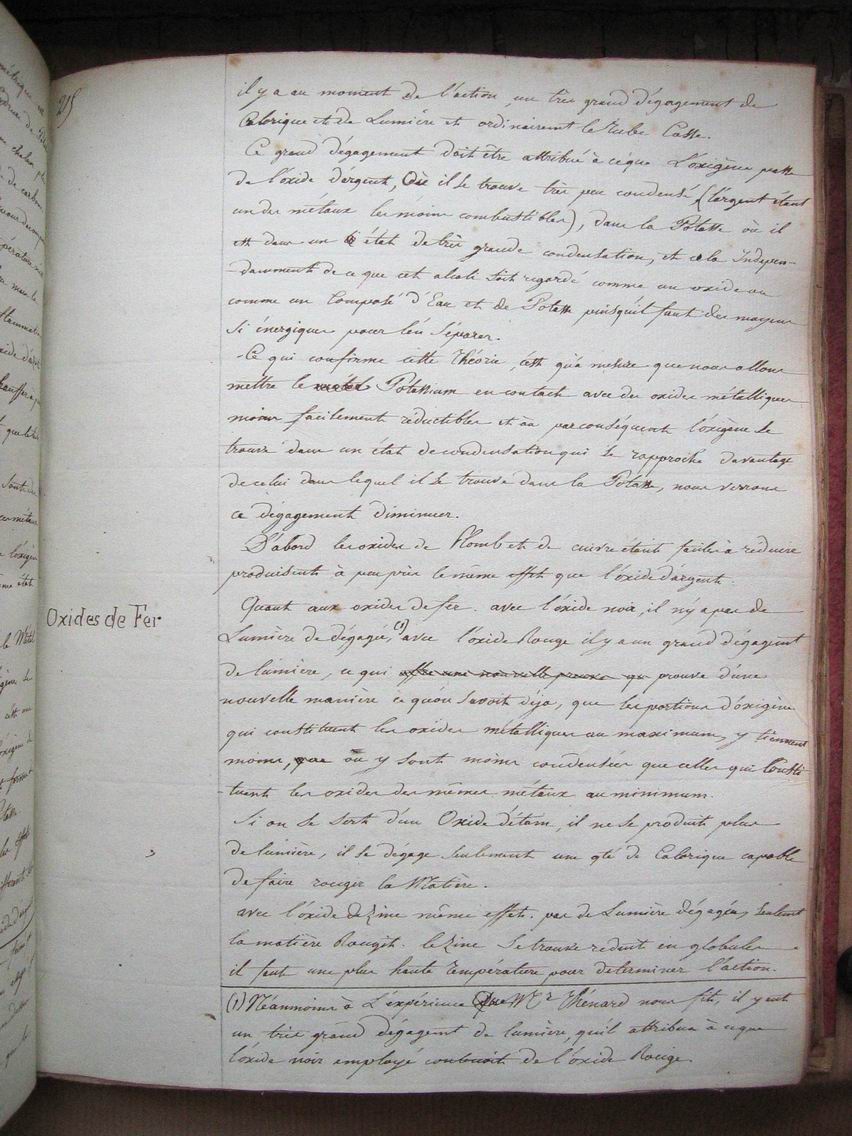 215
il y a au moment de l'action, un très grand dégagement de
Calorique et de Lumière et ordinairemt le tube Casse.
Ce grand dégagement doit être attribué à ce que L'oxigène passe
de l'oxide d'argent, Où il se trouve très peu condensé (l'argent étant
un des métaux les moins combustibles), dans la Potasse où il
est dans un état de très grande condensation, et cela Indépen-
-damment de ce que cet alcali soit regardé comme un oxide ou
comme un Composé d'Eau et de Potasse puisqu'il faut des moyens
Si énergiques pour les Séparer.
Ce qui confirme cette théorie, c'est qu'à mesure que nous allons
mettre le Potassium en contact avec des oxides métalliques
moins facilement réductibles et où par conséquent l'oxigène se
trouve dans un état de condensation qui se rapproche davantage
de celui dans lequel il se trouve dans la Potasse, nous verrons
ce dégagement diminuer.
D'abord les oxides de Plomb et de cuivre étant faciles à réduire
produisent à peu près le même effet que l'oxide d'argent.
Oxides de Fer
Quant aux oxides de fer. avec l'oxide noir, il n'y a pas de
Lumière de dégagée,(1) avec l'oxide Rouge il y a un grand dégagemt
de lumière, ce qui offre une nouvelle preuve que prouve d'une
nouvelle manière ce qu'on Savoit déjà, que les portions d'oxigène
qui constituent les oxides métalliques au maximum, y tiennent
moins, ou y sont moins condensées que celles qui Consti
-tuent les oxides des mêmes métaux au minimum.
Si on se sert d'un Oxide d'étain, il ne se produit plus
de lumière, il se dégage seulement une qté de Calorique capable
de faire rougir la Matière.
avec l'oxide de Zinc même effet. pas de Lumière dégagée, seulemt
la matière Rougit. le Zinc se trouve réduit en globules
il faut une plus haute température pour déterminer l'action.
(1) Néanmoins à L'expérience Que Mr Thénard nous fit, il y eut
un très grand dégagemt de lumière, qu'il attribua à ce que
l'oxide noir employé contenoit de l'oxide Rouge.